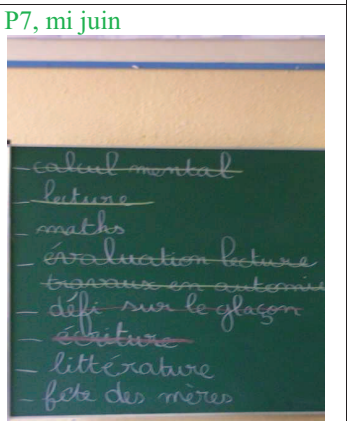 P7, mi juin
- calcul mental
- lecture
- maths
- évaluation lecture
travaux en autonomie
- défi sur le glaçon
- écriture
- littérature
- fete des mères